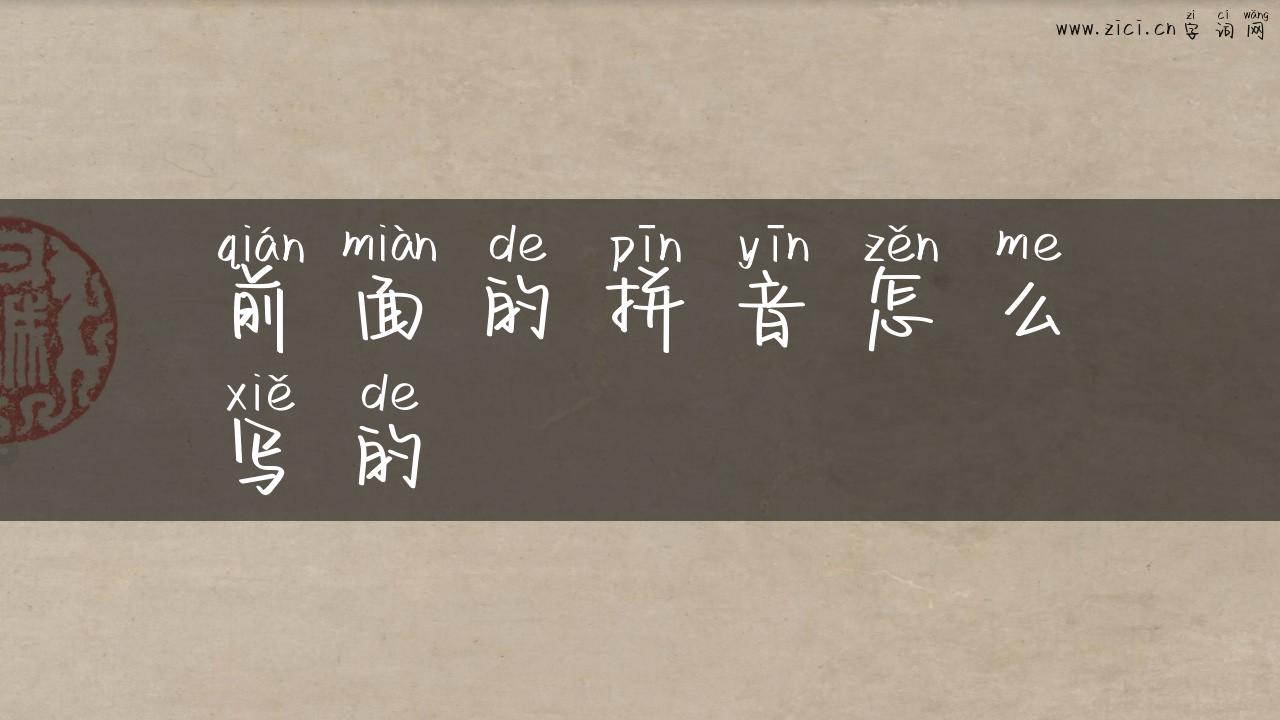 zì cí wǎng
www.zici.cn 字词网
qián miàn de pīn yīn zěn me
前面的拼音怎么
xiě de
写的